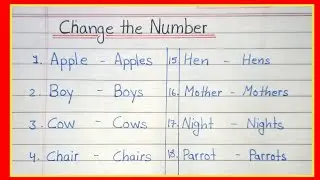 Change the Number
1. Apple - Apples
2. Boy - Boys
3. Cow - Cows
4. Chair - Chairs
15. Hen - Hens
16. Mother - Mothers
17. Night - Nights
18. Parrot - Parrots